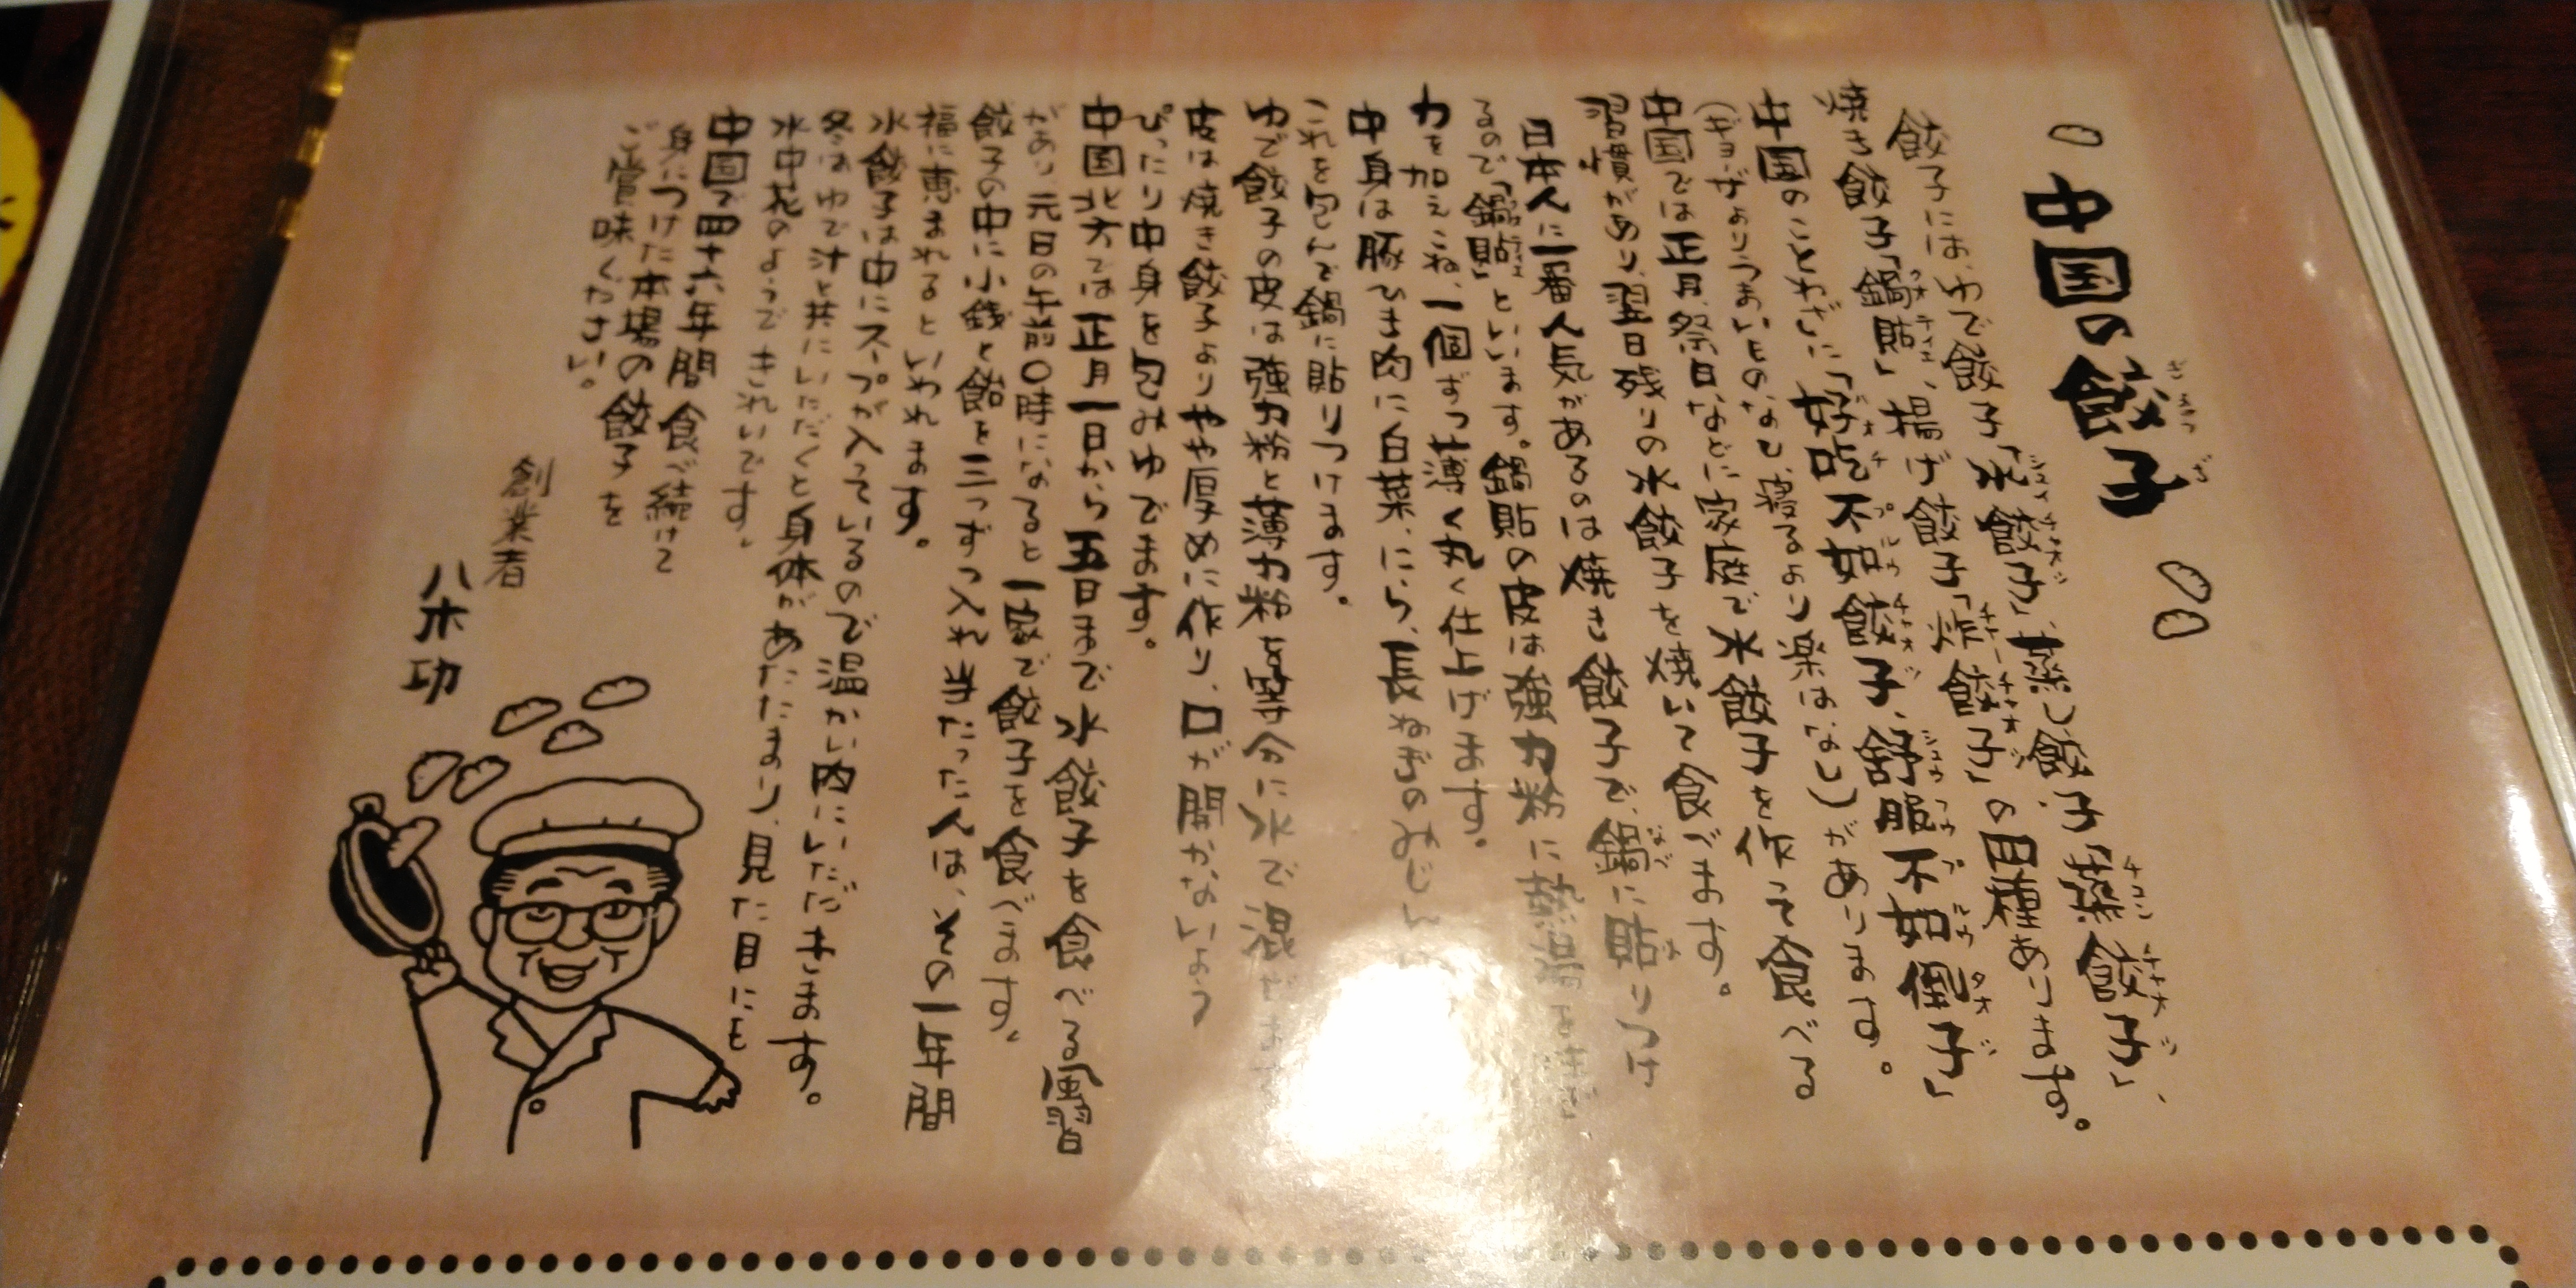 中国の餃子
ぎょうざ
餃子には、ゆで餃子「水餃子」、蒸し餃子「蒸餃子」、
シュイチャオズ
チョンチャオズ
焼き餃子「鍋貼」、揚げ餃子「炸餃子」の四種あります。
クオティエ
チャーチャオズ
中国のことわざに「好吃不如餃子、舒服不如倒子」
ハオチプルウチャオズ シュウフウプルウタオズ
(ギョーザよりうまいものなし、寝るより楽はなし)があります。
中国では正月、祭日などに家庭で水餃子を作って食べる
習慣があり、翌日残りの水餃子を焼いて食べます。
日本人に一番人気があるのは焼き餃子で、鍋に貼りつけ
なべ は
るので「鍋貼」といいます。鍋貼の皮は強力粉に熱湯
力を加えこね、一個ずつ薄く丸く仕上げます。
中身は豚ひき肉に白菜、にら、長ねぎのみじん
これを包んで鍋に貼りつけます。
ゆで餃子の皮は強力粉と薄力粉を等分に水で混ぜ
皮は焼き餃子よりやや厚めに作り、口が開かないよう
ぴったり中身を包みゆでます。
中国北方では正月一日から五日まで水餃子を食べる風習
があり元日の午前〇時になると一家で餃子を食べます。
餃子の中に小銭と飴を三つずつ入れ当たった人は、その一年間
福に恵まれるといわれます。
水餃子は中にスープが入っているので温かい内にいただきます。
冬はゆで汁と共にいただくと身体があたたまり、見た目にも
水中花のようできれいです。
中国で四十六年間食べ続けて
身につけた本場の餃子を
ご賞味ください。
創業者
八木功